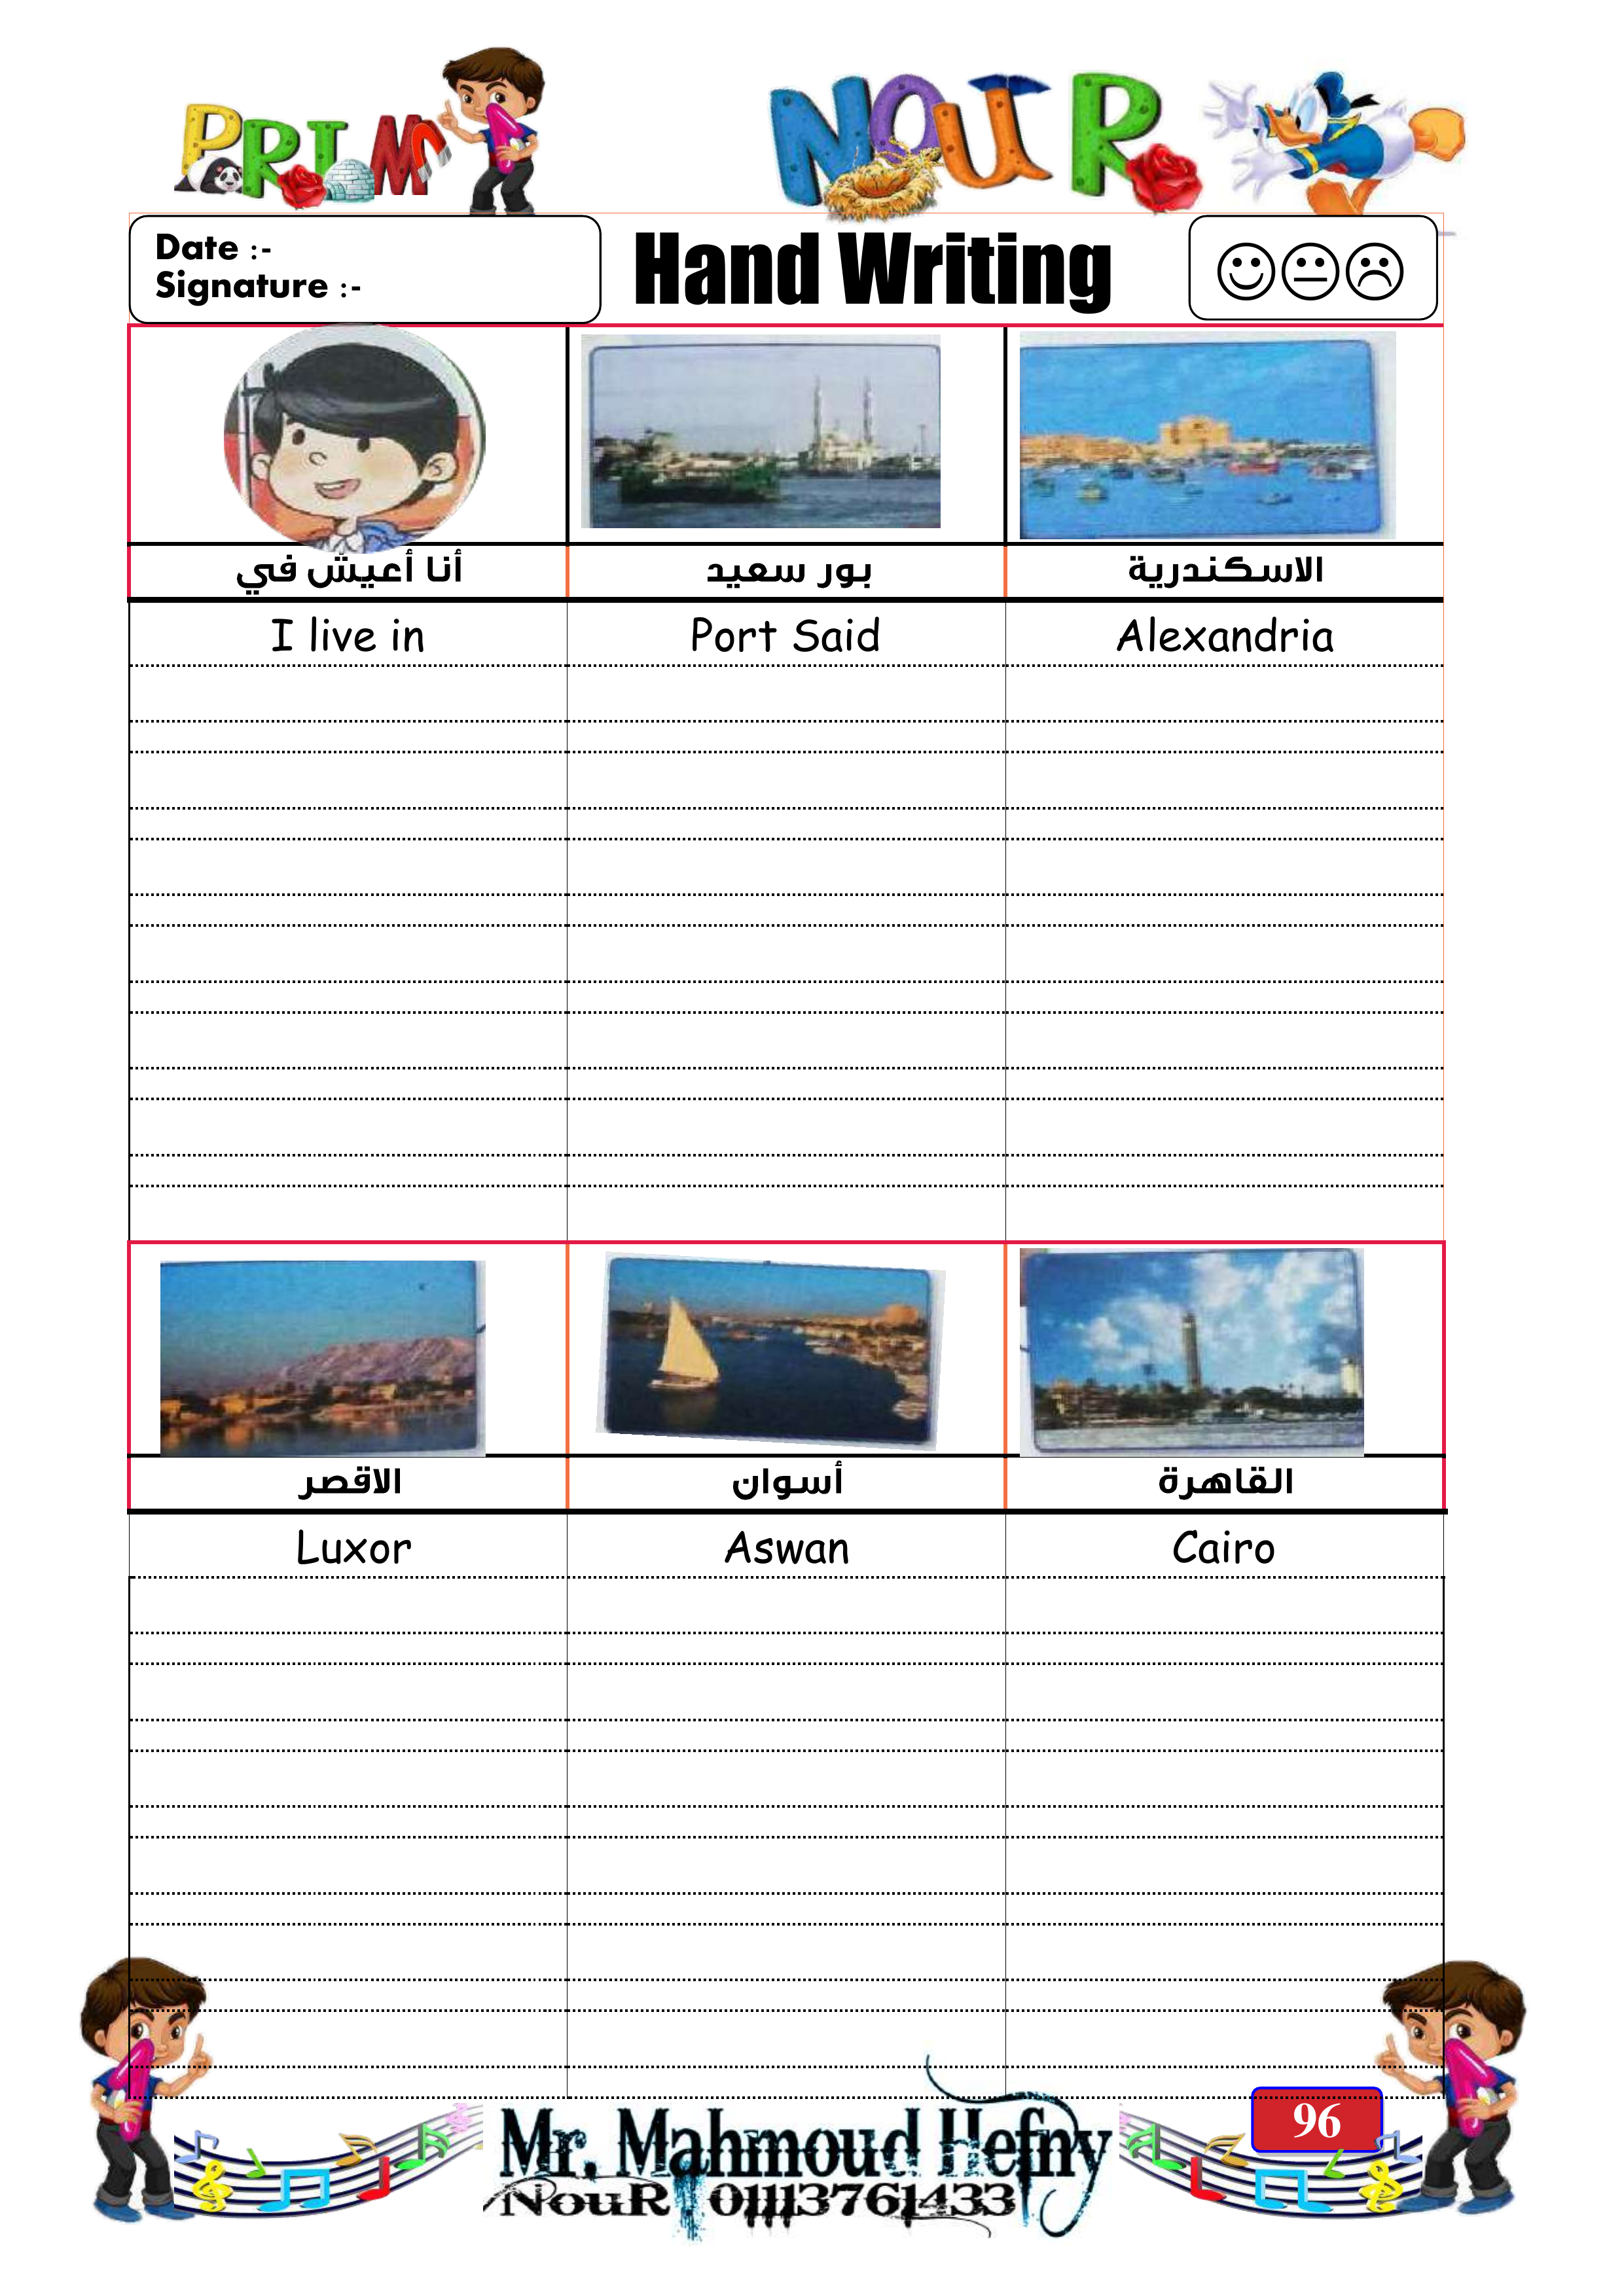 PRIM 1
NOUR
Date :-
Signature :-
Hand Writing
أنا أعيش في
بور سعيد
الاسكندرية
I live in
Port Said
Alexandria
الاقصر
أسوان
القاهرة
Luxor
Aswan
Cairo
96
Mr. Mahmoud Hefny
NouR. 01113761433